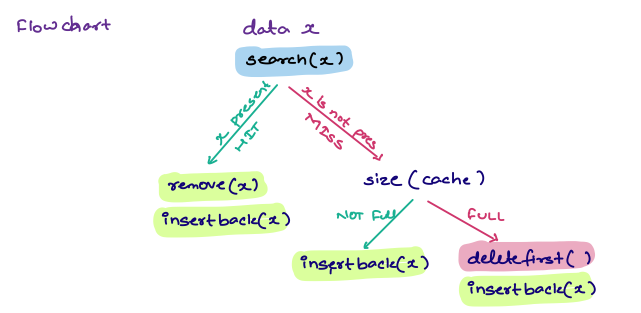 Flowchart
data x
search(x)
x present
HIT
x is not pres
MISS
remove(x)
insertback(x)
size (cache)
NOT Full
FULL
insertback(x)
deletefirst( )
insertback(x)